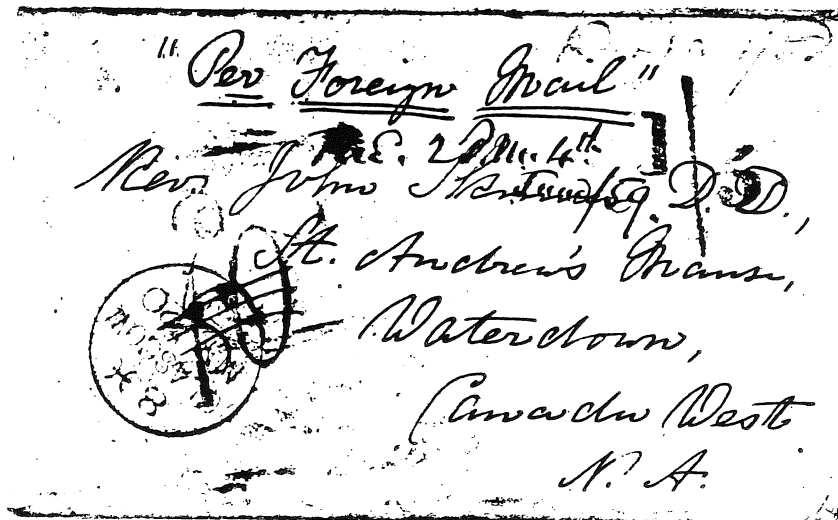 "Per Foreign Mail"
Rev. John D.D.,
St. Andrew's Manse,
Waterdown,
Canada West
N. A.